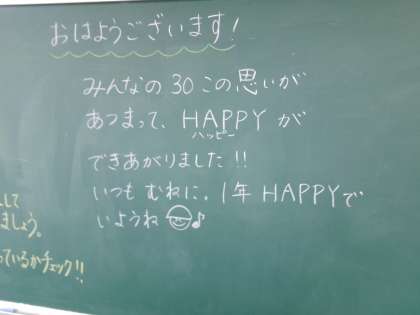 おはようございます!
みんなの30この思いが
あつまって、HAPPYが
ハッピー
できあがりました!!
いつもむねに。1年HAPPYで
いようね
して
ましょう。
っているかチェック!!